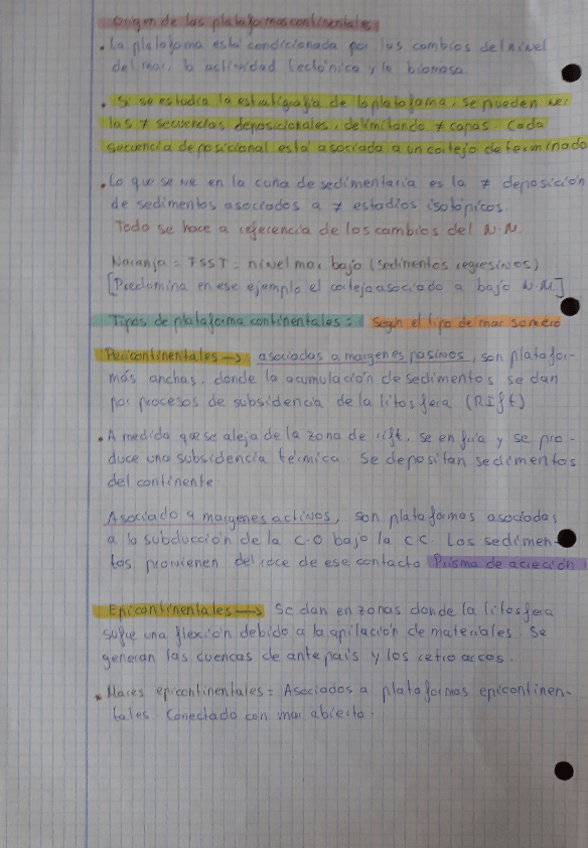 Origen de las plataformas continentales
• La plataforma está condicionada por los cambios del nivel
del mar, la actividad tectónica y la biomasa
• Si se estudia la estratigrafía de la plataforma, se pueden ver
las ≠ secuencias deposicionales, delimitando ≠ capas. Cada
secuencia deposicional está asociada a un cortejo determinado
• Lo que se ve en la cuña de sedimentaria es la ≠ deposición
de sedimentos asociados a ≠ estadios isotópicos.
Todo se hace a referencia de los cambios del N.M.
Naranja = FSST = nivel mar bajo (sedimentos regresivos)
[Predomina en ese ejemplo el cortejo asociado a bajo N.M]
Tipos de plataforma continentales: Según el tipo de mar somero
Pericontinentales → asociadas a margenes pasivos, son platafor-
más anchas, donde la acumulación de sedimentos se dan
por procesos de subsidencia de la litosfera (Rift)
• A medida que se aleja de la zona de rift, se enfría y se pro-
duce una subsidencia térmica. Se depositan sedimentos
del continente.
Asociado a margenes activos, son plataformas asociadas
a la subducción de la C.O bajo la C.C. Los sedimen-
tos provienen del roce de ese contacto Prisma de acreción
Epicontinentales → Se dan en zonas donde la litosfera
sufre una flexión debido a la apilación de materiales. Se
generan las cuencas de antepaís y los retroarcos.
• Mares epicontinentales = Asociados a plataformas epicontinen-
tales. Conectado con mar abierto.